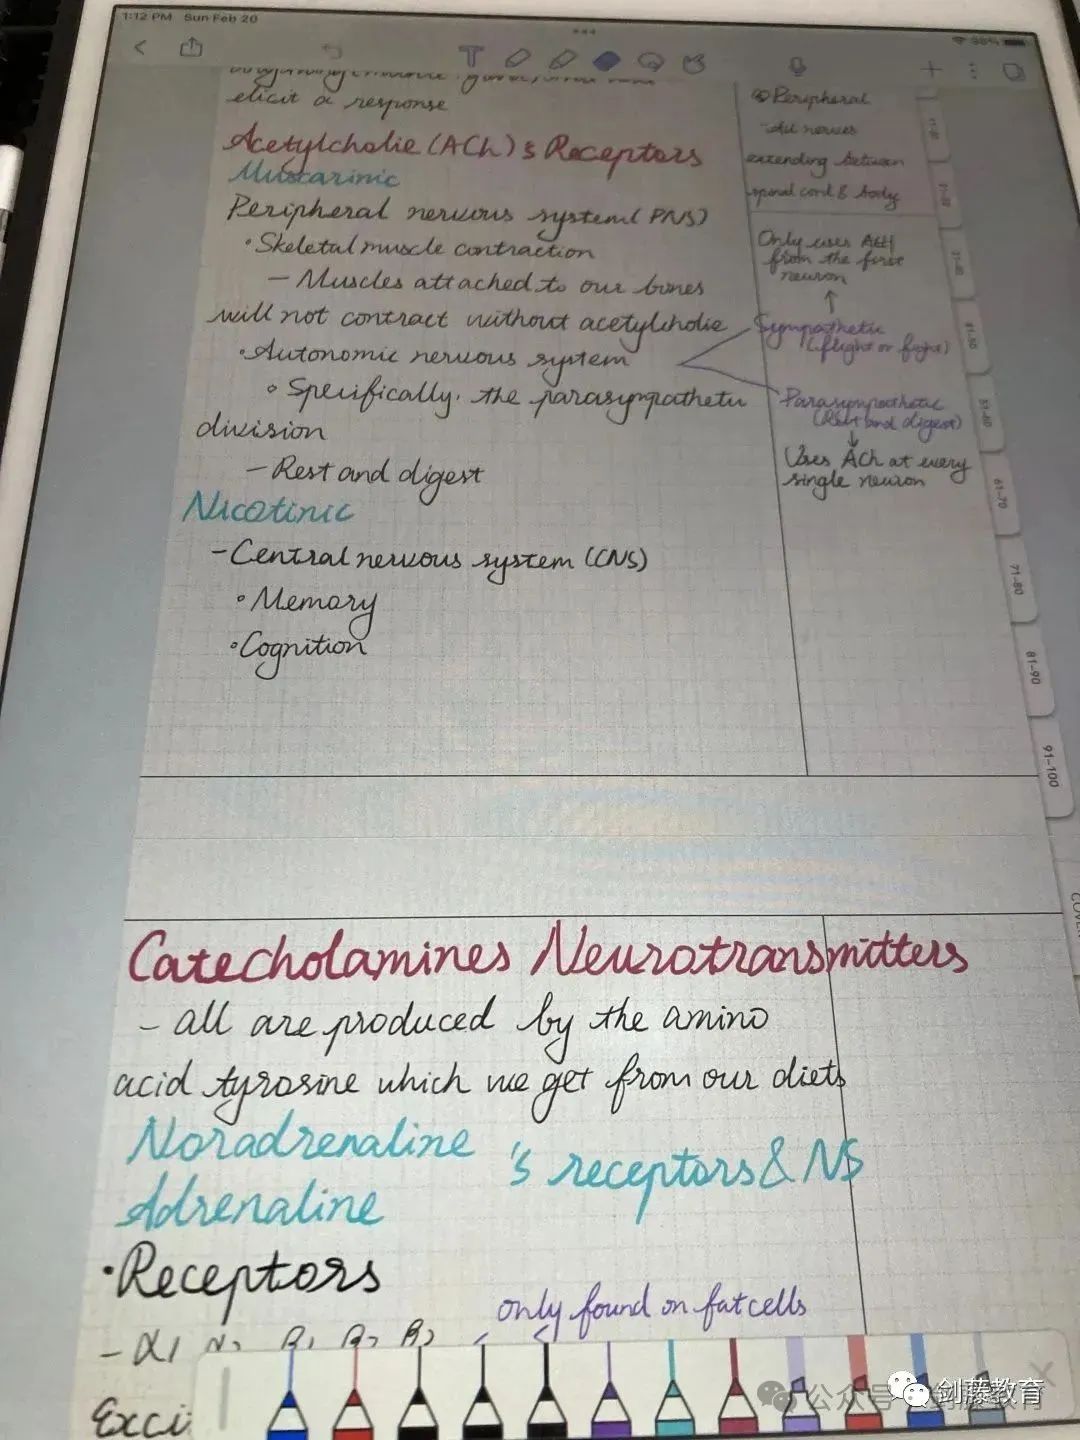 1:12 PM Sun Feb 20
elicit a response
Acetylcholie (ACh)'s Receptors
Muscarinic
Peripheral nervous system (PNS)
• Skeletal muscle contraction
– Muscles attached to our bones
will not contract without acetylcholie
• Autonomic nervous system
• Specifically. the parasympathetic
division
– Rest and digest
Nicotinic
– Central nervous system (CNS)
• Memory
• Cognition
Peripheral
- All nerves
extending between
spinal cord & body
Only uses ACH
from the first
neuron
Sympathetic
(flight or fight)
Parasympathetic
(Rest and digest)
Uses ACh at every
single neuron
61-70
71-80
81-90
91-100
Catecholamines Neurotransmitters
– all are produced by the amino
acid tyrosine which we get from our diets
Noradrenaline
Adrenaline
's receptors & NS
• Receptors
only found on fat cells
– α1
Exci
公众号
剑藤教育